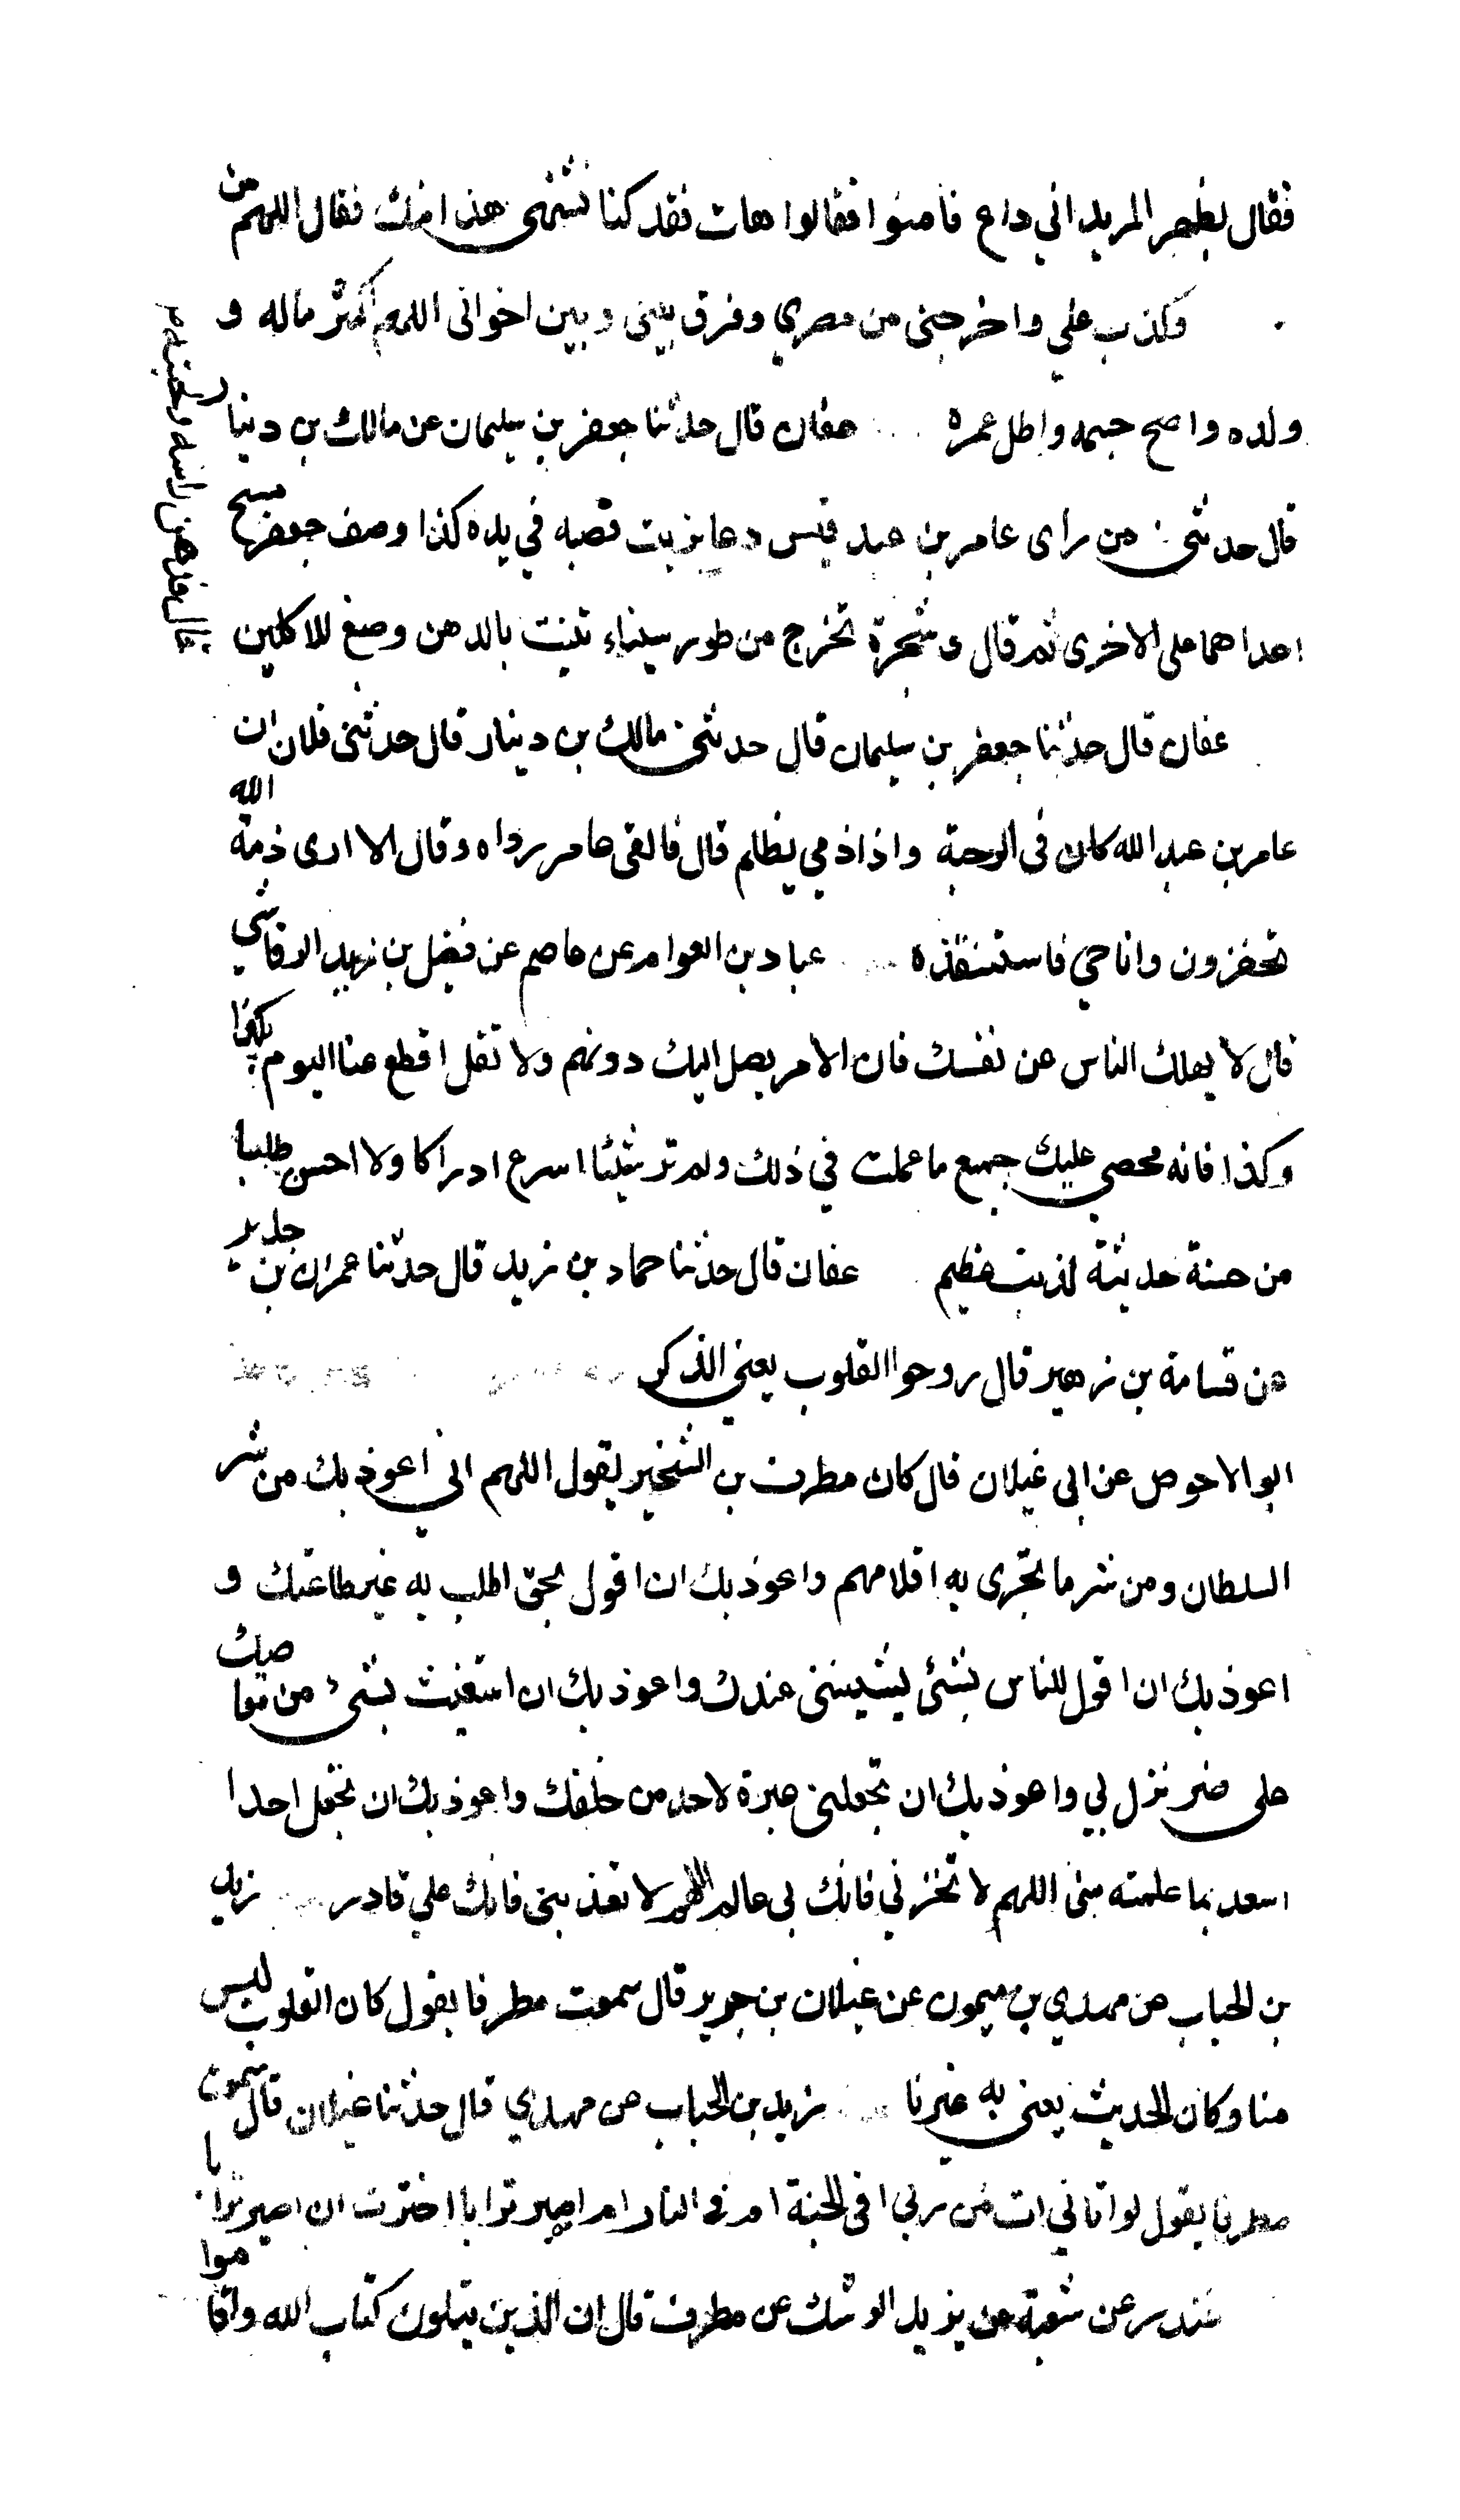 فقال بظهر المربد اني داع فامنوا فقالوا هات فقد كنا نشتهى هذا منك فقال اللهم من
وكذب علي واخرجنى من مصري وفرق بيني وبين اخوانى اللهم اكثر ماله و
ولده واصح جسمه واطل عمره عفان قال حدثنا جعفر بن سليمان عن مالك بن دينار
قال حدثنى من راى عامر بن عبد قيس دعا بزيت فصبه في يده كذا وصف جعفر مسح
احداهما على الاخرى ثم قال وشجرة تخرج من طور سيناء تنبت بالدهن وصبغ للاكلين
قال فدهن راسه ولحيته
عفان قال حدثنا جعفر بن سليمان قال حدثنى مالك بن دينار قال حدثنى فلان ان
عامر بن عبد الله كان فى الرحبة واذا ذمي يظلم قال فالقى عامر رداه وقال الا ارى ذمة الله
تخفرون وانا حي فاستنقذه عباد بن العوام عن عاصم عن فضيل بن زيد الرقاشي
قال لا يهلك الناس عن نفسك فان الامر يصل اليك دونهم ولا تقل اقطع عنا اليوم بكذا
وكذا فانه محصي عليك جميع ما عملت في ذلك ولم تر شيئا اسرع ادراكا ولا احسن طلبا
من حسنة حديثة لذنب عظيم عفان قال حدثنا حماد بن زيد قال حدثنا عمران بن حدير
عن قسامة بن زهير قال روحوا القلوب يعنى الذكر
ابو الاحوص عن ابى غيلان قال كان مطرف بن الشخير يقول اللهم اني اعوذ بك من شر
السلطان ومن شر ما تجرى به اقلامهم واعوذ بك ان اقول بحق اطلب به غير طاعتك و
اعوذ بك ان اقول للناس بشئ يشيننى عندك واعوذ بك ان استغيث بشئ من معاصيك
على ضر نزل بي واعوذ بك ان تجعلنى عبرة لاحد من خلقك واعوذ بك ان تجعل احدا
اسعد بما علمته منى اللهم لا تخزني فانك بى عالم اللهم لا تعذبنى فانك علي قادر زيد
بن الحباب عن مهدي بن ميمون عن غيلان بن جرير قال سمعت مطرفا يقول كان القلوب ليس
منا وكان الحديث يعنى به غيرنا زيد بن الحباب عن مهدي قال حدثنا غيلان قال سمعت
مطرفا يقول لو اتاني ات من ربي افى الجنة ام فى النار ام اصير ترابا اخترت ان اصير ترابا
غندر عن شعبة عن يزيد الرشك عن مطرف قال ان الذين يتلون كتاب الله واقاموا